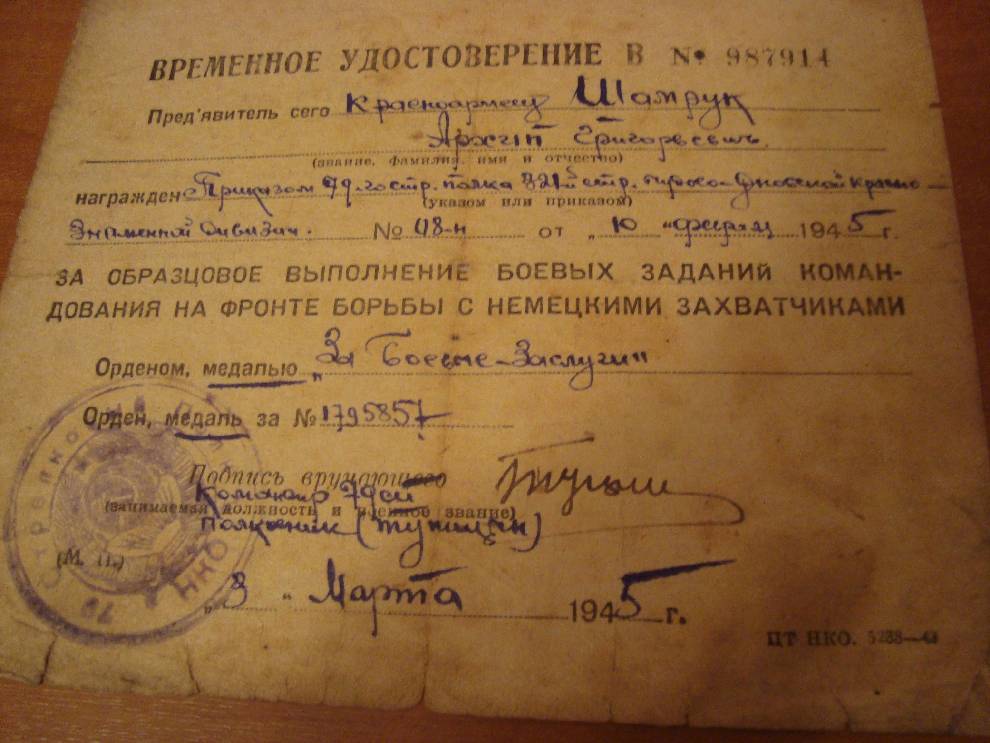 ВРЕМЕННОЕ УДОСТОВЕРЕНИЕ В № 987914
Пред'явитель сего Красноармеец Шамрук
Архип Григорьевич
(звание, фамилия, имя и отчество)
награжден Приказом 79 гв. стр. полка
(указом или приказом)
Знаменной дивизии. № 48-н от „10 " 1945 г.
ЗА ОБРАЗЦОВОЕ ВЫПОЛНЕНИЕ БОЕВЫХ ЗАДАНИЙ КОМАН-
ДОВАНИЯ НА ФРОНТЕ БОРЬБЫ С НЕМЕЦКИМИ ЗАХВАТЧИКАМИ
Орденом, медалью „За Боевые-Заслуги"
Орден, медаль за № 1795857
Подпись вручающего
Командир 79
(занимаемая должность и военное звание)
Полковник
(М. П.)
„3 " Марта 1945 г.
ПТ НКО.
79 Стрелковый Полк
НКО